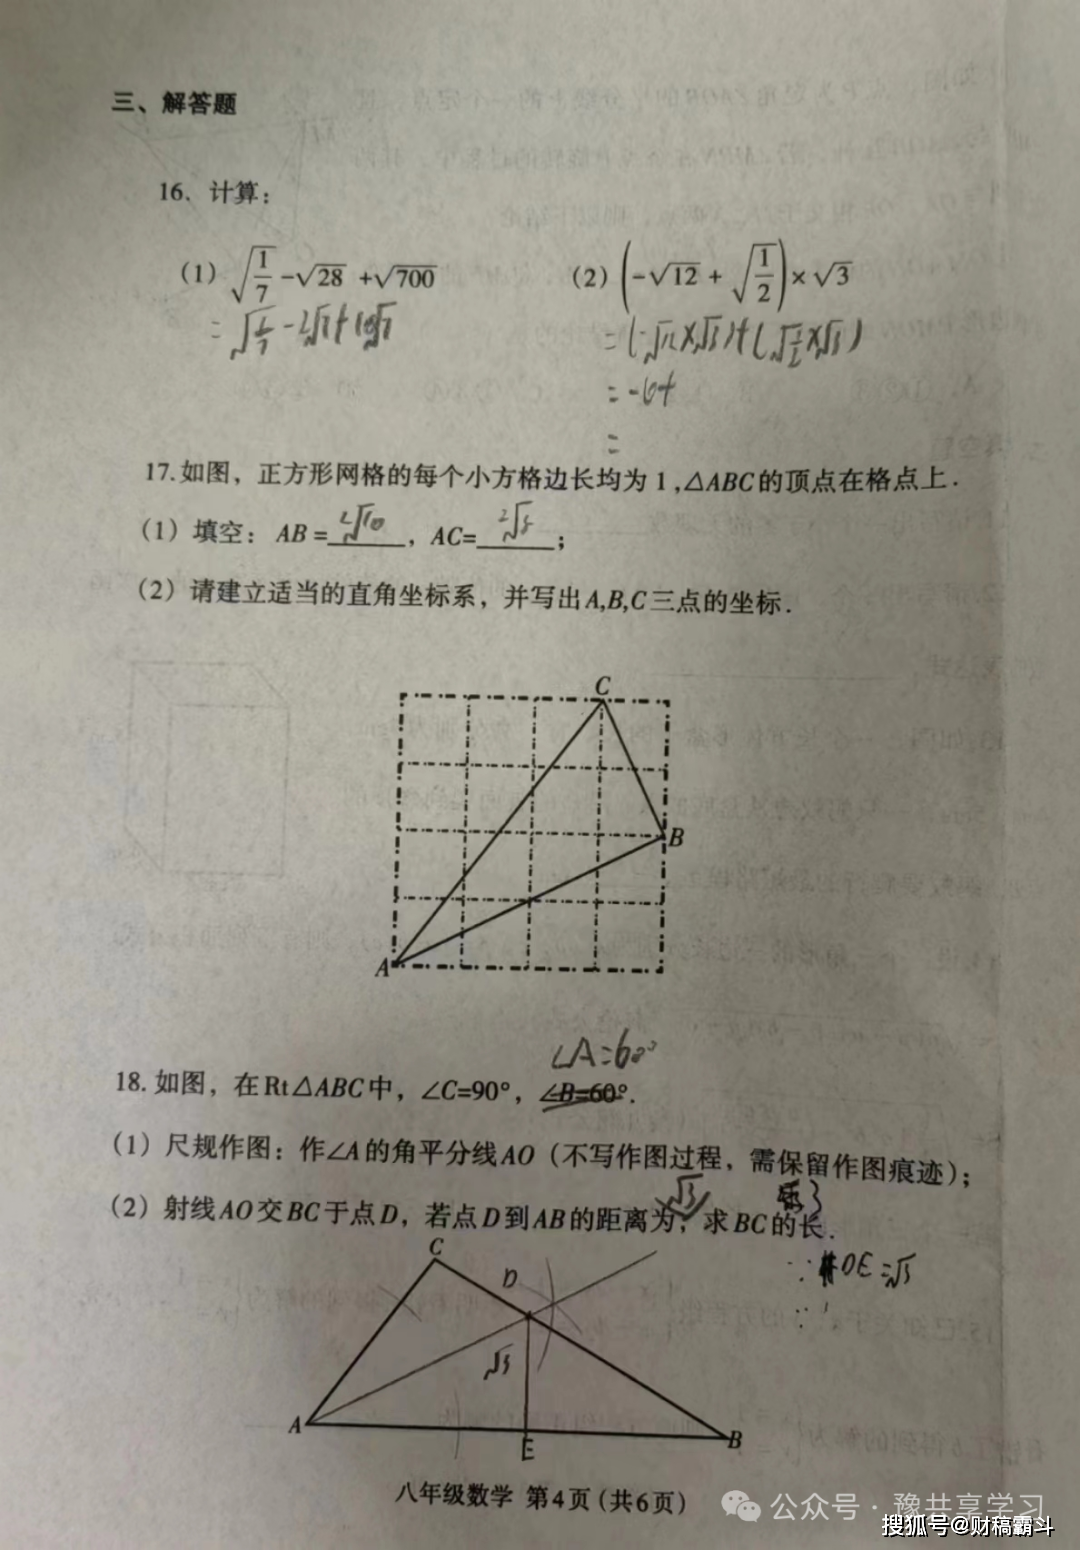 三、解答题
16. 计算：
(1) √(1/7) -√28 +√700
(2) (-√12 + √(1/2)) × √3
= √(1/7) - 2√7 + 10√7
= (-√12 × √3) + (√(1/2) × √3)
= -6+
=
17.如图，正方形网格的每个小方格边长均为 1 ,△ABC的顶点在格点上.
(1) 填空: AB = 2√10 , AC= 2√5 ;
(2) 请建立适当的直角坐标系，并写出A,B,C三点的坐标.
C
B
A
∠A=60°
18. 如图，在Rt△ABC中，∠C=90°，∠B=60°.
(1) 尺规作图：作∠A的角平分线AO（不写作图过程，需保留作图痕迹）;
√3
(2) 射线AO交BC于点D，若点D到AB的距离为，求BC的长.
∵ DE=√3
∵
C
D
√3
A
E
B
八年级数学 第4页(共6页)
公众号 · 豫共享学习
搜狐号@财稿霸斗